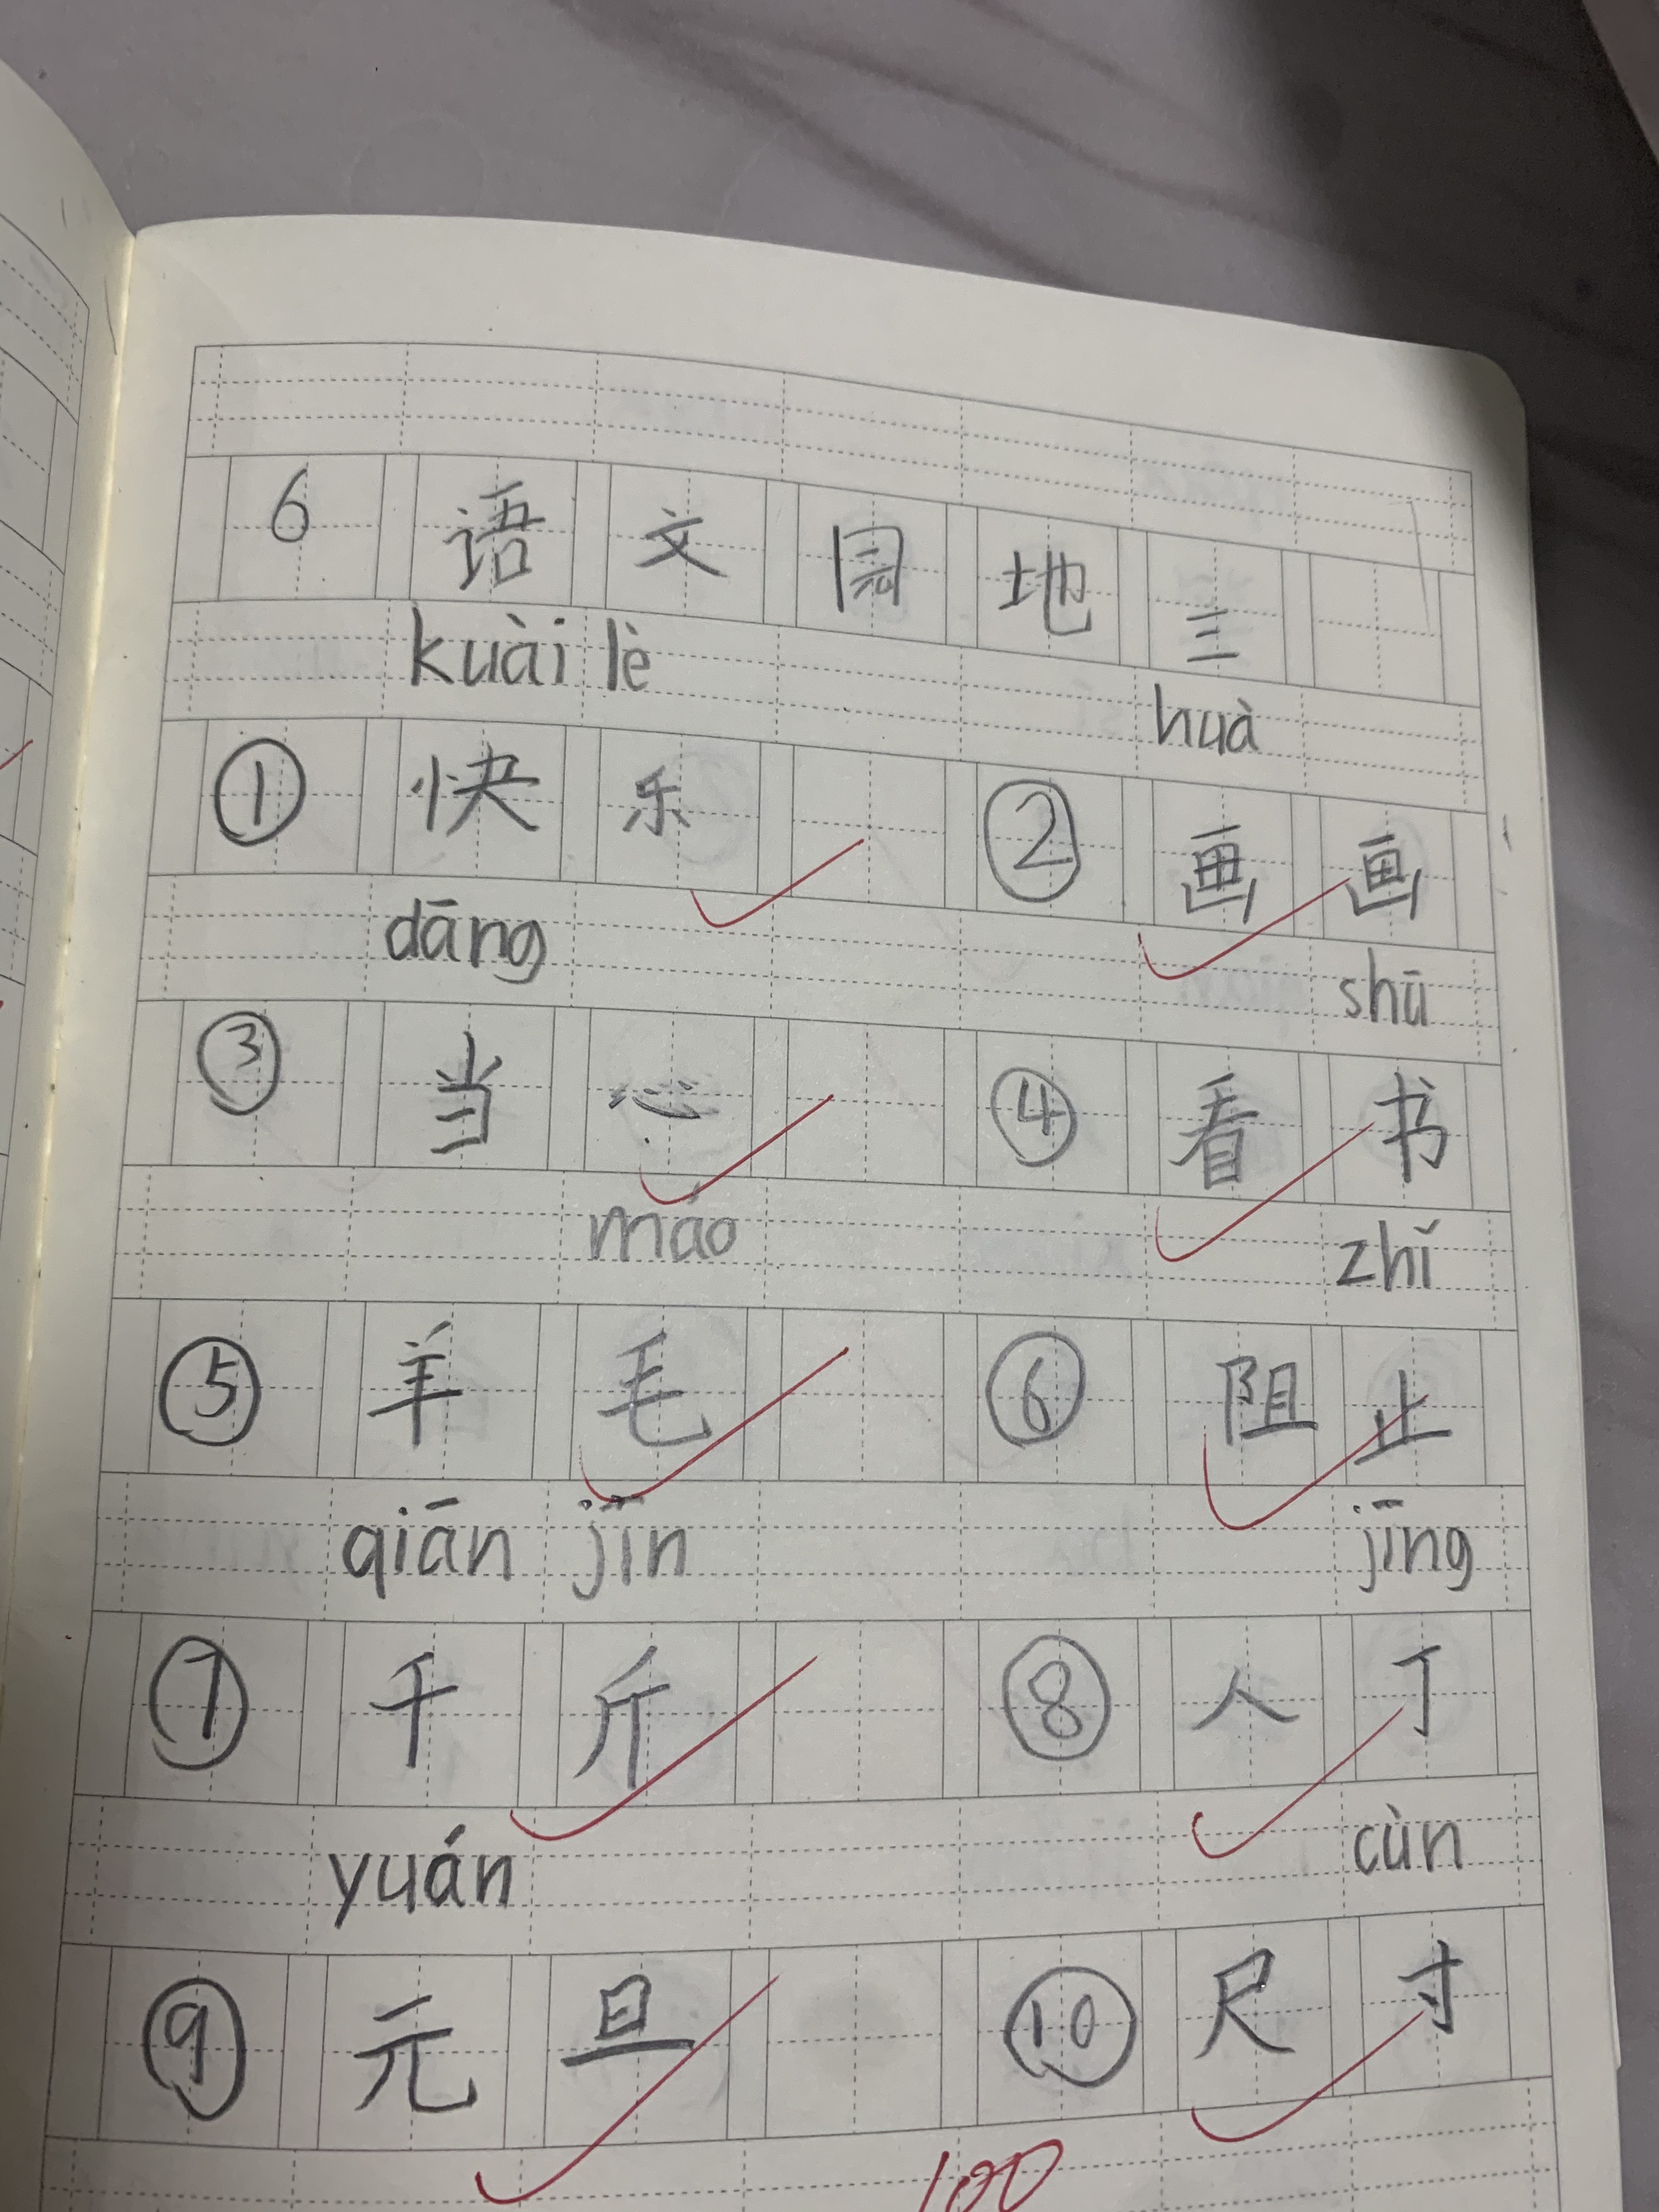 6 语文园地三
kuài lè huà
① 快乐 ② 画画
dāng shū
③ 当心 ④ 看书
máo zhǐ
⑤ 羊毛 ⑥ 阻止
qiān jīn jīng
⑦ 千斤 ⑧ 人丁
yuán cùn
⑨ 元旦 ⑩ 尺寸
100